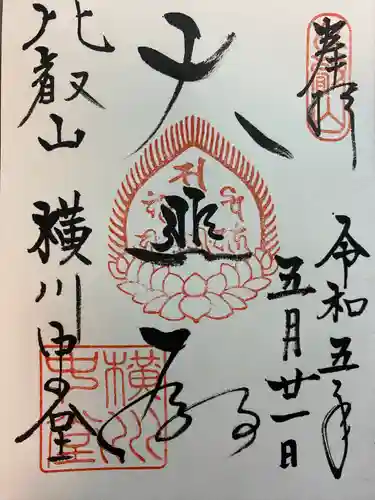 奉拝
令和五年
五月廿一日
大悲殿
比叡山 横川中堂